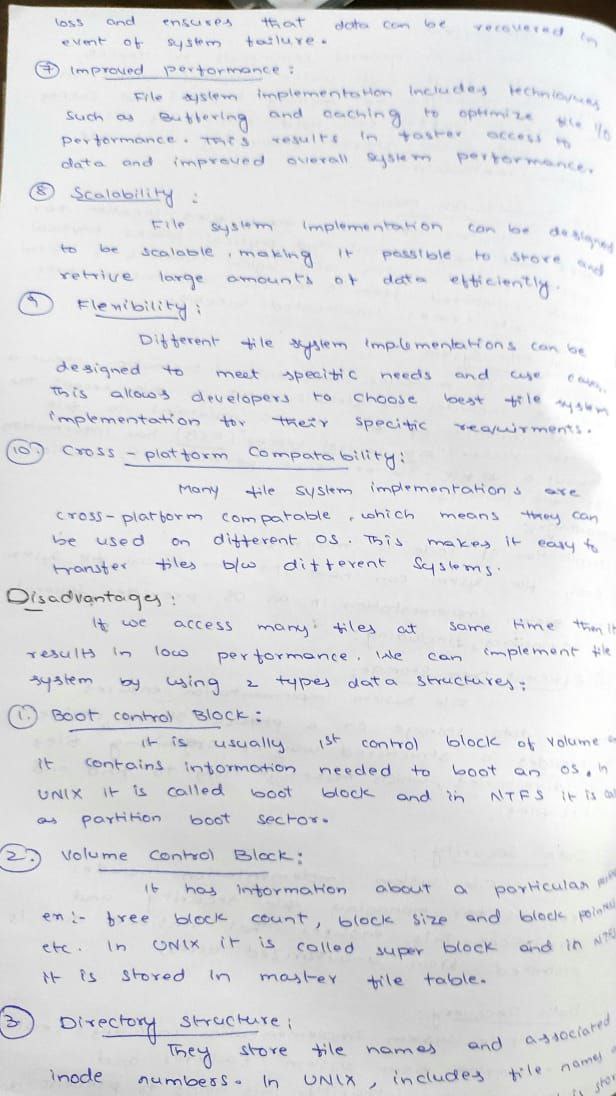 loss and ensures that data can be recovered in
event of system failure.
⑦ Improved performance :
File system implementation includes techniques
such as Buffering and caching to optimize file I/o
performance. This results in faster access to
data and improved overall system performance.
⑧ Scalability :
File system implementation can be designed
to be scalable, making it possible to store and
retrive large amounts of data efficiently.
⑨ Flexibility :
Different file system implementations can be
designed to meet specific needs and use cases.
This allows developers to choose best file system
implementation for their specific requirments.
⑩ Cross - platform Compatability :
Many file system implementations are
cross-platform compatable, which means they can
be used on different OS. This makes it easy to
transfer files b/w different systems.
Disadvantages :
If we access many files at same time then it
results in low performance. We can implement file
system by using 2 types data structures :
①. Boot control Block :
it is usually 1st control block of volume
it contains information needed to boot an OS. in
UNIX it is called boot block and in NTFS it is
as partition boot sector.
②. Volume Control Block :
it has information about a particular
ex :- free block count, block size and block
etc. In UNIX it is called super block and in
it is stored in master file table.
③ Directory structure :
They store file names and associated
inode numbers. In UNIX, includes file names